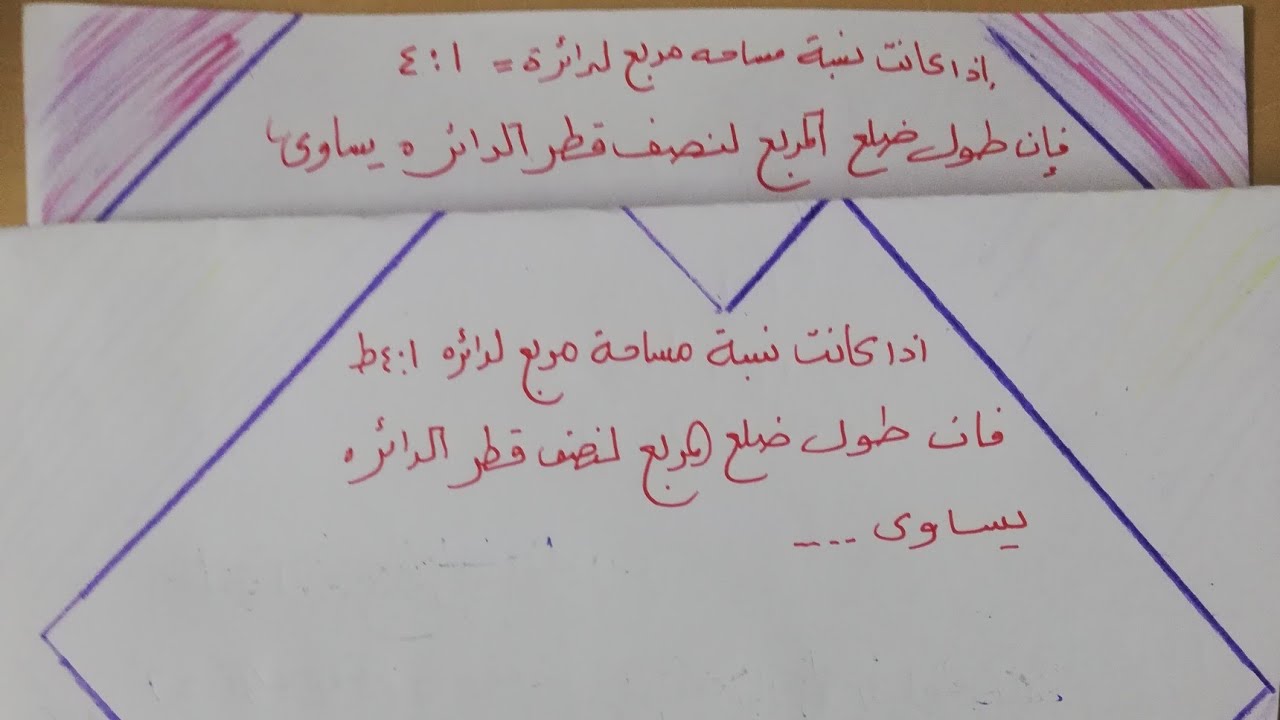 إذا كانت نسبة مساحه مربع لدائرة = ١ : ٤
فإن طول ضلع المربع لنصف قطر الدائره يساوى
اذا كانت نسبة مساحة مربع لدائره ١ : ٤ط
فان طول ضلع المربع لنصف قطر الدائره
يساوى ----